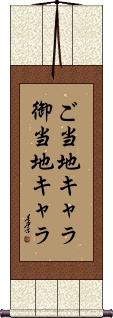 ご当地キャラ
御当地キャラ